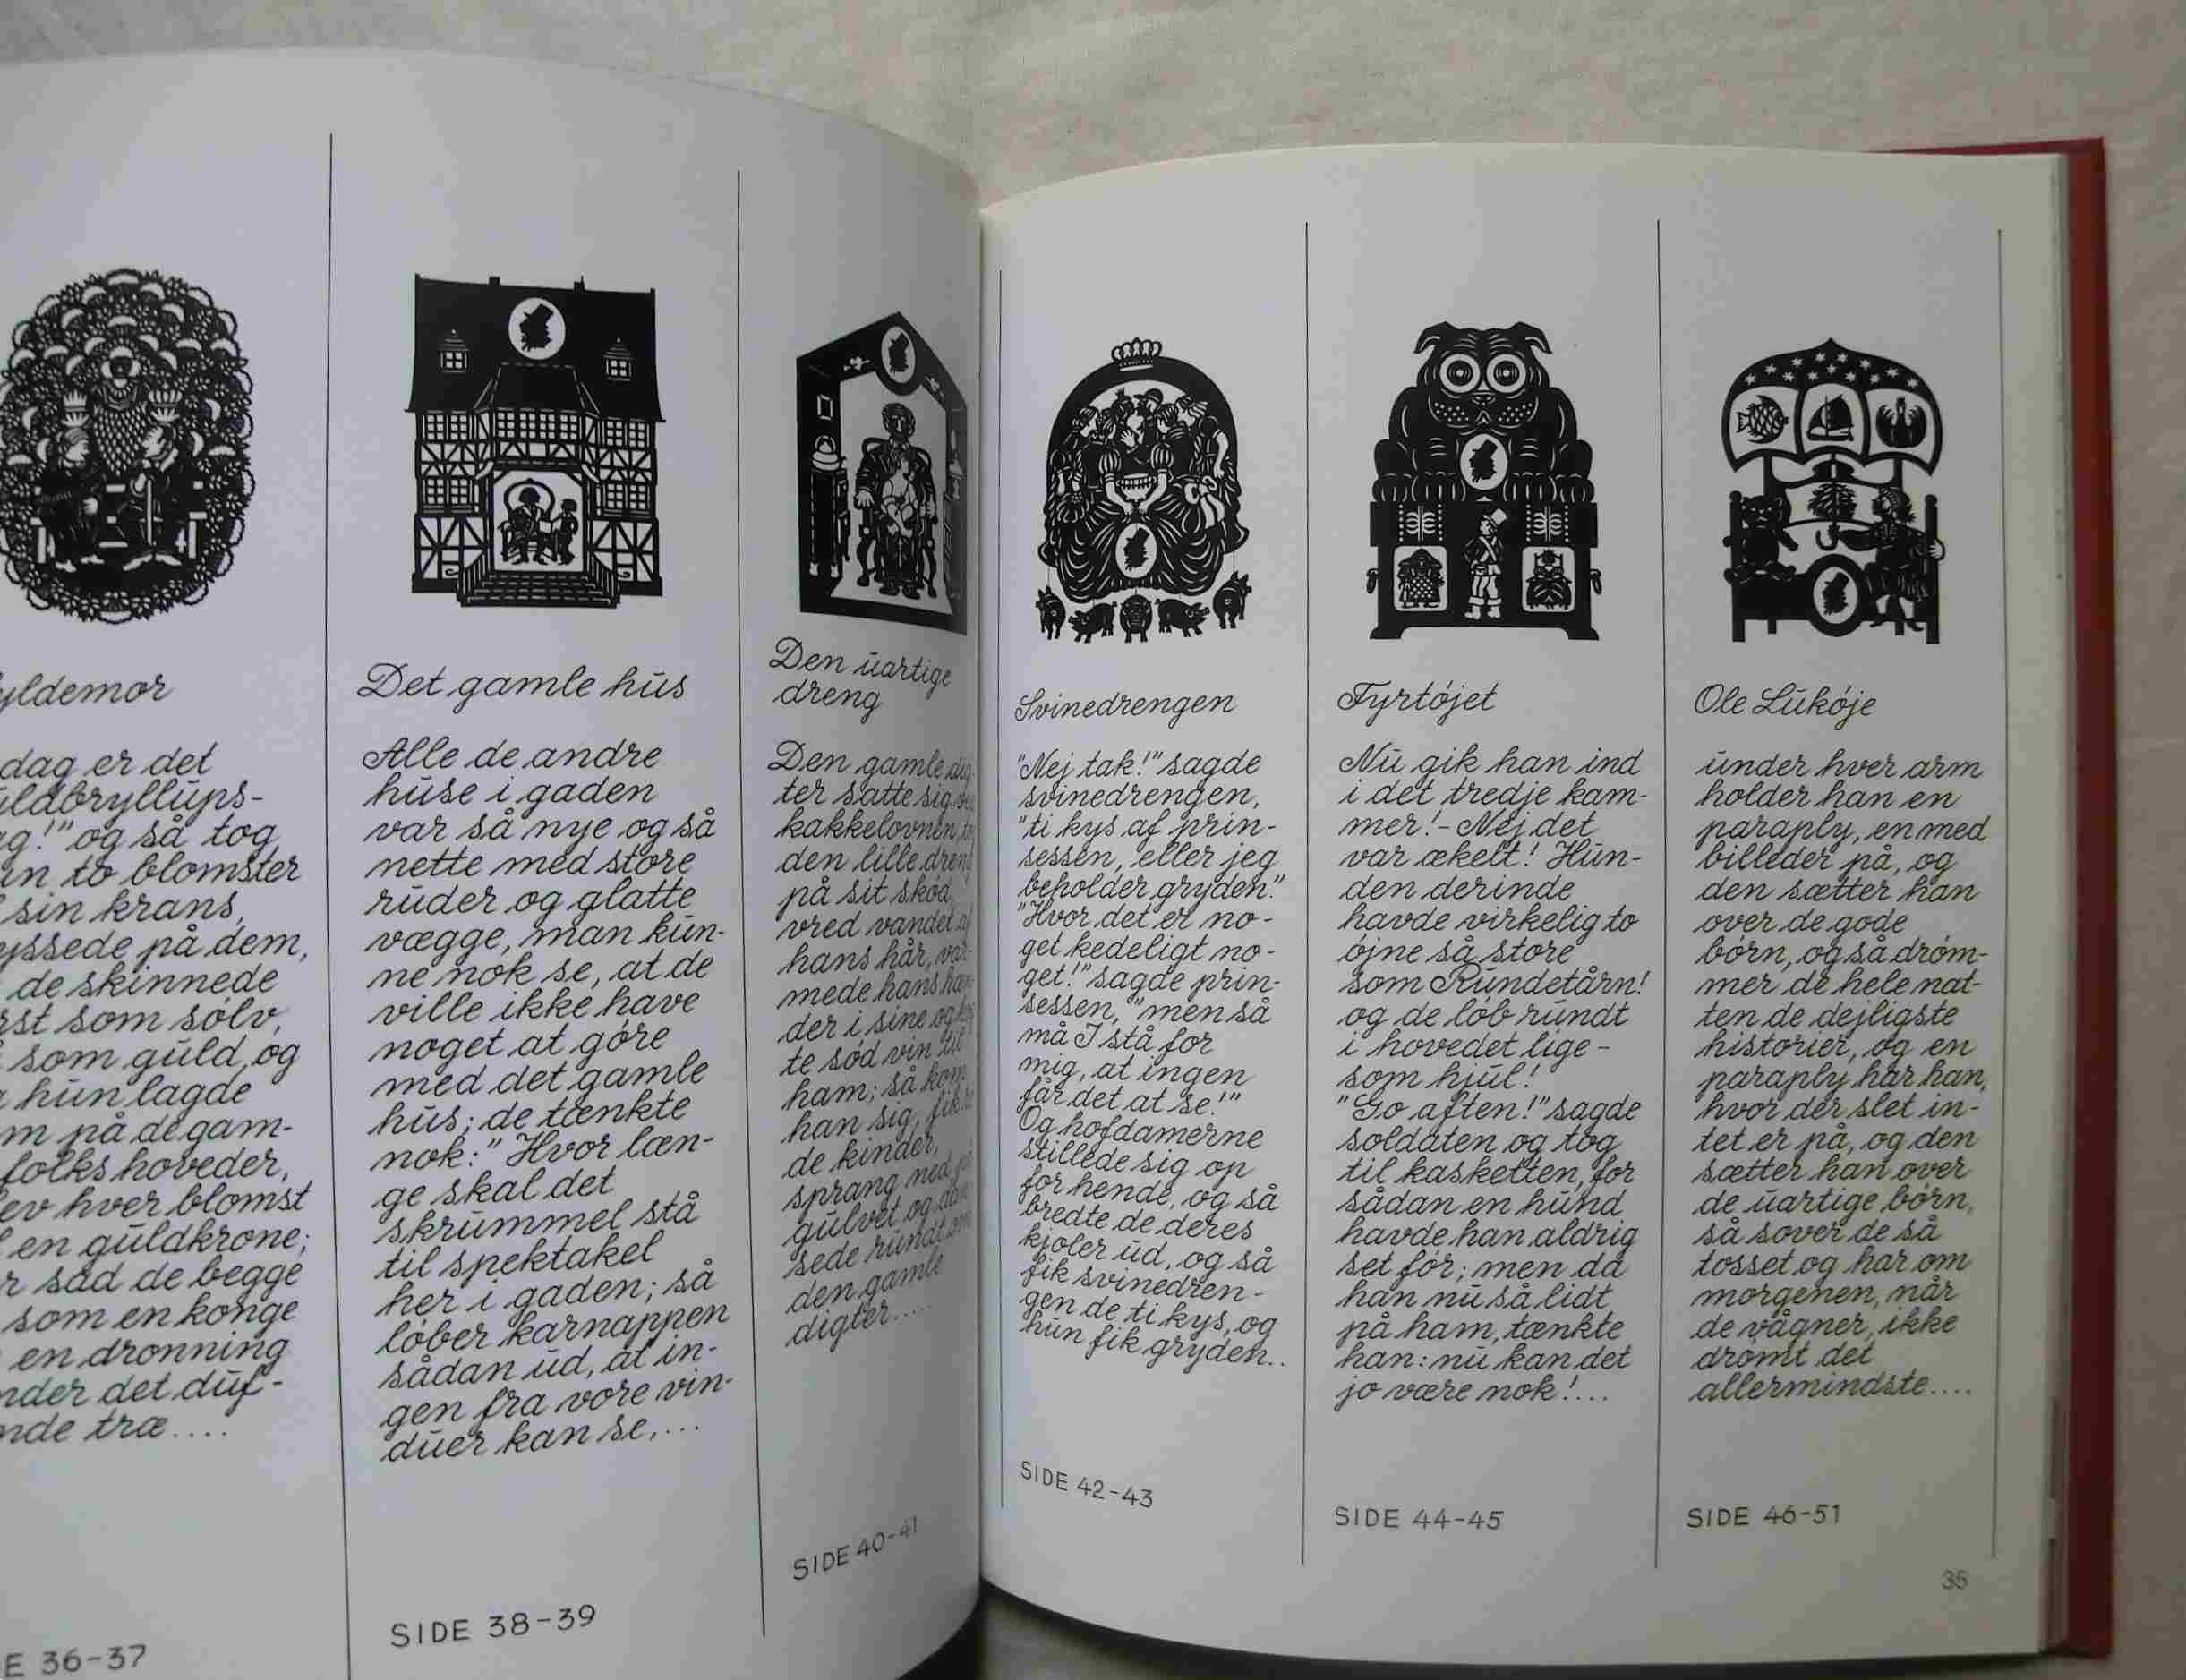 dag er det
og så tog
to blomster
sin krans,
på dem,
de skinnede
som sølv,
som guld, og
hun lagde
på de gam-
folks hoveder,
hver blomst
en guldkrone;
sad de begge
som en konge
en dronning
det duf-
træ....
36-37
Det gamle hus
Alle de andre
huse i gaden
var så nye og så
nette med store
ruder og glatte
vægge, man kun-
ne nok se, at de
ville ikke have
noget at gøre
med det gamle
hus; de tænkte
nok: "Hvor læn-
ge skal det
skrummel stå
til spektakel
her i gaden; så
løber karnappen
sådan ud, at in-
gen fra vore vin-
duer kan se,...
SIDE 38-39
Den uartige
dreng
Den gamle dig-
ter satte sig
kakkelovnen
den lille dreng
på sit skød,
vred vandet af
hans hår, var-
mede hans hæn-
der i sine og
te sød vin til
ham; så kom
han sig, fik
de kinder,
sprang ned på
gulvet og dan-
sede rundt om
den gamle
digter.....
SIDE 40-41
Svinedrengen
"Nej tak!" sagde
svinedrengen,
"ti kys af prin-
sessen, eller jeg
beholder gryden."
"Hvor det er no-
get kedeligt no-
get!" sagde prin-
sessen, "men så
må I stå for
mig, at ingen
får det at se!"
Og hofdamerne
stillede sig op
for hende, og så
bredte de deres
kjoler ud, og så
fik svinedren-
gen de ti kys, og
hun fik gryden..
SIDE 42-43
Fyrtøjet
Nu gik han ind
i det tredje kam-
mer!- Nej det
var ækelt! Hun-
den derinde
havde virkelig to
øjne så store
som Rundetårn!
og de løb rundt
i hovedet lige-
som hjul!
"Go aften!" sagde
soldaten og tog
til kasketten, for
sådan en hund
havde han aldrig
set før; men da
han nu så lidt
på ham, tænkte
han: nu kan det
jo være nok!...
SIDE 44-45
Ole Lukøje
under hver arm
holder han en
paraply, en med
billeder på, og
den sætter han
over de gode
børn, og så drøm-
mer de hele nat-
ten de dejligste
historier, og en
paraply har han,
hvor der slet in-
tet er på, og den
sætter han over
de uartige børn,
så sover de så
tosset og har om
morgenen, når
de vågner, ikke
drømt det
allermindste....
SIDE 46-51
35